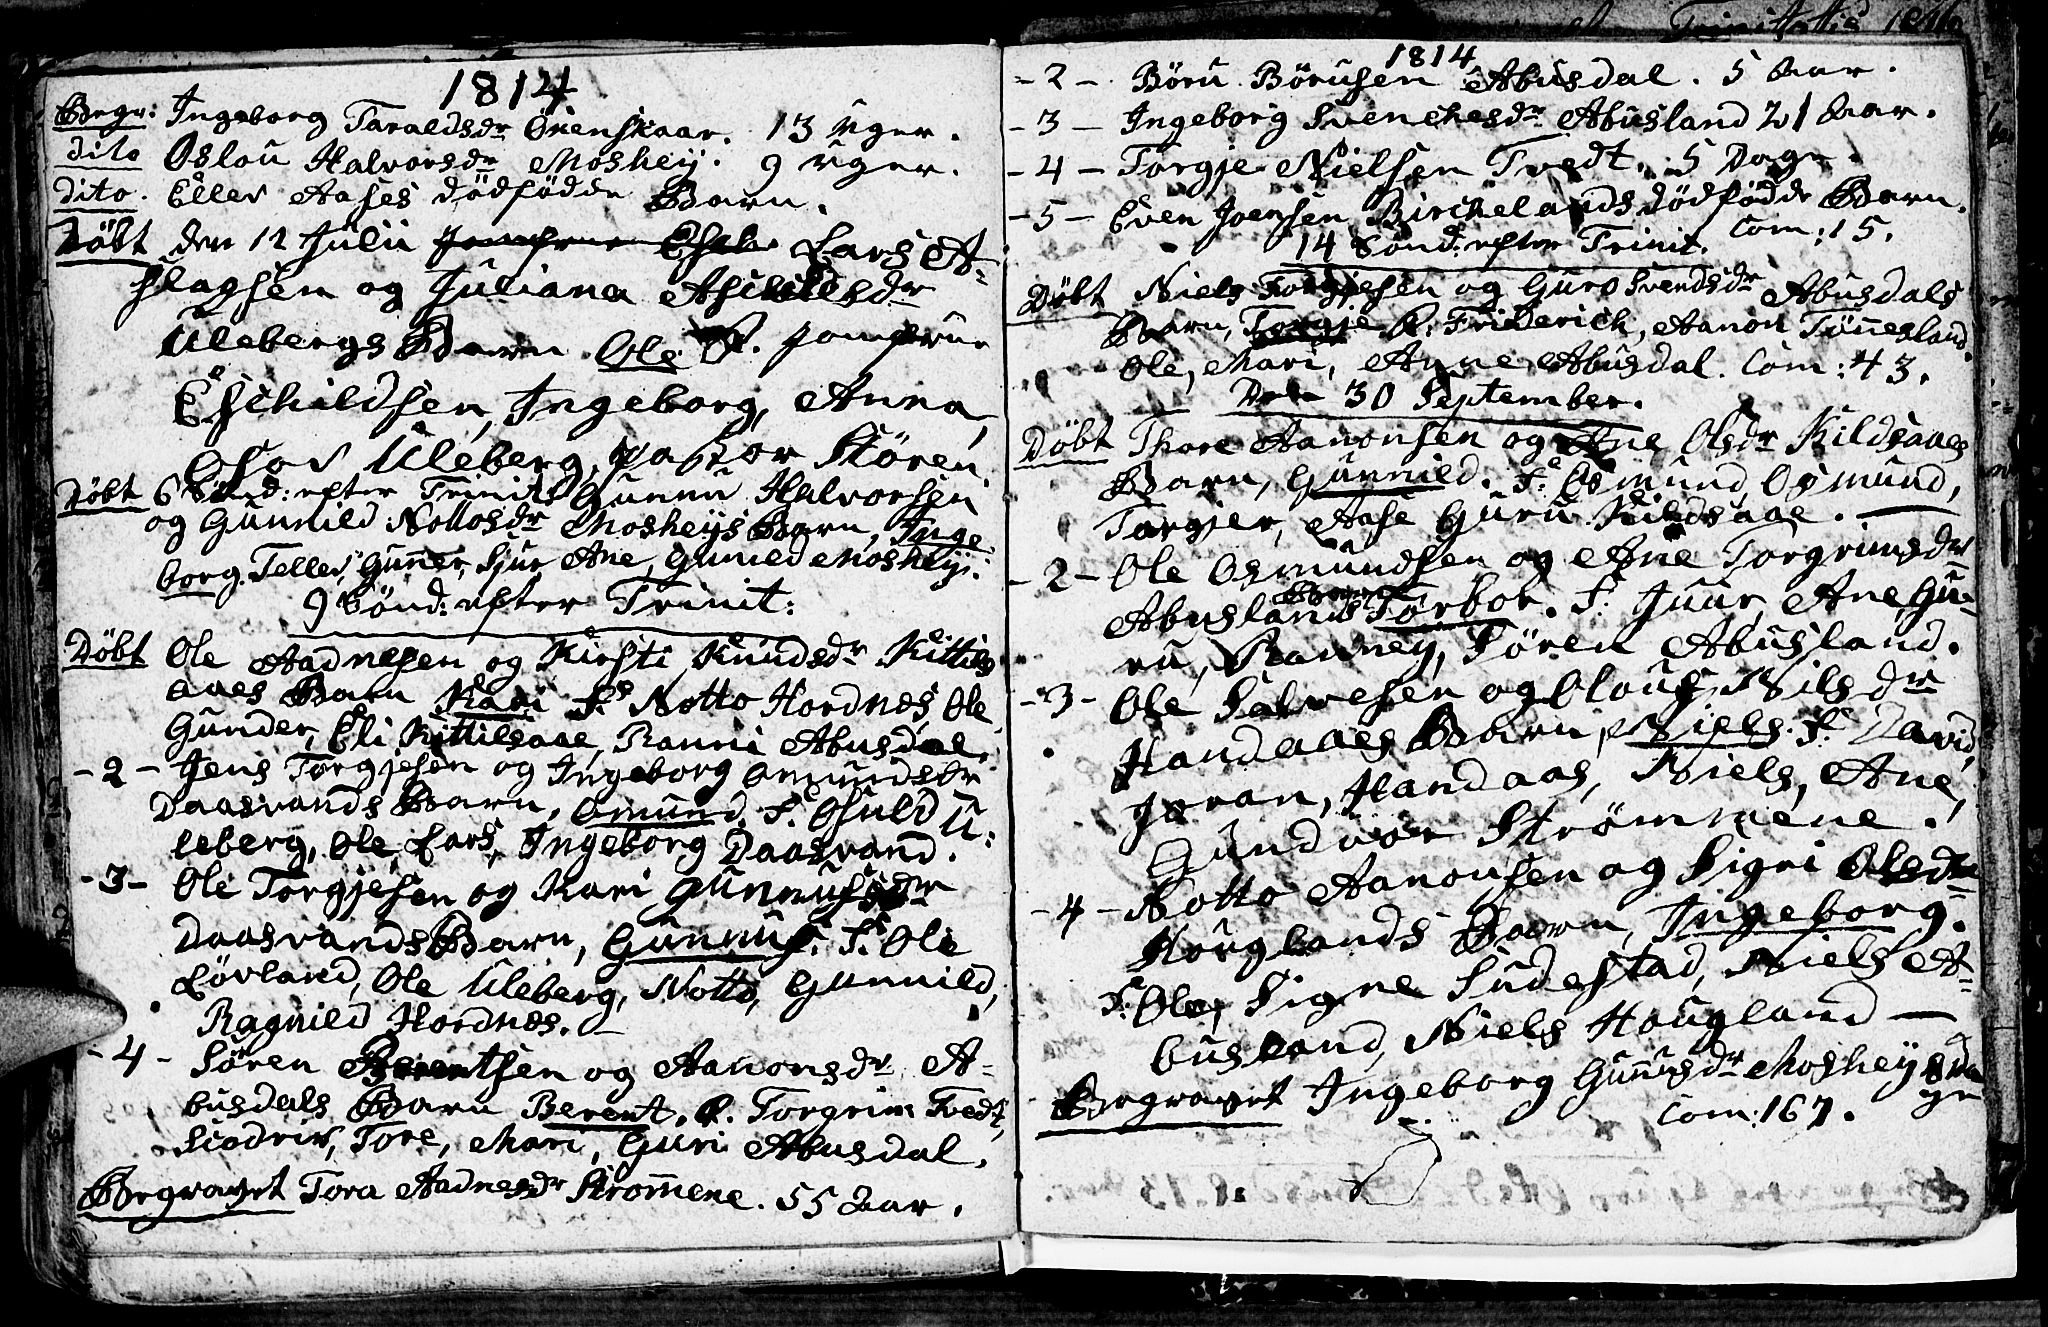 1814
Begr: Ingeborg Taraldsdr Öienskaar. 13 Uger.
dito Oslou Halvorsdr Moshey. 9 Uger.
dito. Eller Aases dödfödde Barn.
Döbt den 12 Julii Lars A-
slagsen og Juliana Aschildsdr
Ulebergs Barn Ole F. Jomfrue
Eschildsen, Ingeborg, Anna,
Osov Uleberg, pastor Stören
Döbt 6 Sönd: efter Trinit Gunnu Halvorsen
og Gunnild Nottosdr Mosheys Barn, Inge
borg. Tellev, Gunner, Sjur Ane, Guneld Moshey:
9 Sönd: efter Trinit:
Döbt Ole Aadnesen og Kirsti Knudsdr Kittils
aaes Barn Kari F. Notto Hordnes, Ole
Gunder, Eli Kittilsaae, Ranni Abusdal.
-2- Jens Torgjesen og Ingeborg Omundsdr
Daasvands Barn, Omund. F. Osuld U-
leberg, Ole, Lars, Ingeborg Daasvand.
-3- Ole Torgjesen og Kari Gunnusdr
Daasvands Barn, Gunnuf. F. Ole
Lövland, Ole Uleberg, Notto, Gunnild,
Ragnild Hordnes.
-4- Sören Berentsen og Aanonsdr A-
busdals Barn Berent. F. Torgrim Tvedt,
Tore, Mari, Guri Abusdal.
Begravet Tora Aadnesdr Strömene. 55 Aar.
1814
-2- Böru Börusen Abusdal. 5 Aar.
-3- Ingeborg Svenchesdr Abusland 21 Aar.
-4- Torgje Nielsen Tvedt. 5 Dage.
-5- Even Joensen Birchelands dödfödde Barn.
14 Sönd: efter Trinit. Com: 15.
Döbt Niels Torgjesen og Guro Svendsdr Abusdals
Barn, Torgje F. Friderich, Aanon Tönnesland.
Ole, Mari, Anne Abusdal. Com: 43.
Den 30 September.
Döbt Thore Aanonsen og Ane Olsdr Kildsaaes
Barn, Gunnild. F. Osmund, Osmund,
Torgjer, Aase Guru Kildsaae.
-2- Ole Osmundsen og Ane Torgrimsdr
Abuslands Barn Torbor. F. Juur, Ane Gu-
ru, Ranney, Sören Abusland.
-3- Ole Salvesen og Olouf Nilsdr
Handaaes Barn, Niels. F. David,
Joran, Handaas, Niels, Ane,
Gundvor Strömmene.
-4- Notto Aanonsen og Sigri Olsdr
Houglands Barn, Ingeborg.
F. Ole, Signe Sudestad, Niels A-
busland, Niels Hougland
Begravet Ingeborg Gunnusdr Moshey 8 Da
ge
Com: 167.